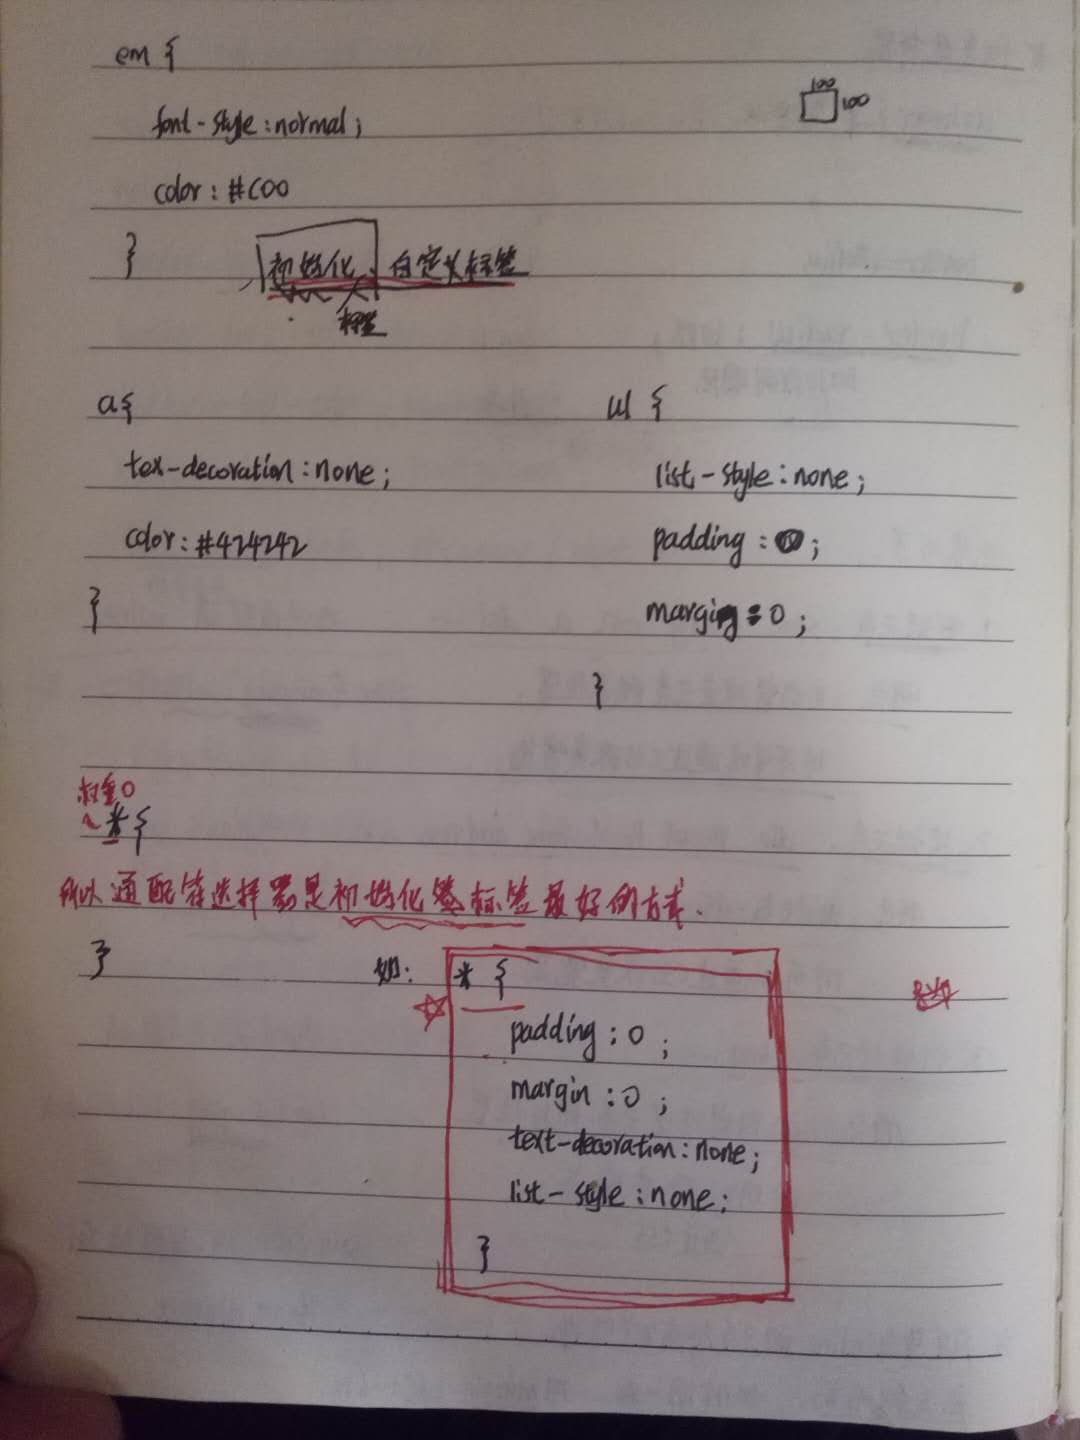 em {
100
font-style:normal;
100
color: #C00
}
初始化、自定义标签
标签
a{
tex-decoration:none;
color: #424242
}
ul {
list-style:none;
padding: 0;
margin: 0;
}
权重0
*{
所以通配符选择器是初始化 标签最好的方式.
}
如:
* {
padding: 0;
margin: 0;
text-decoration: none;
list-style: none;
}